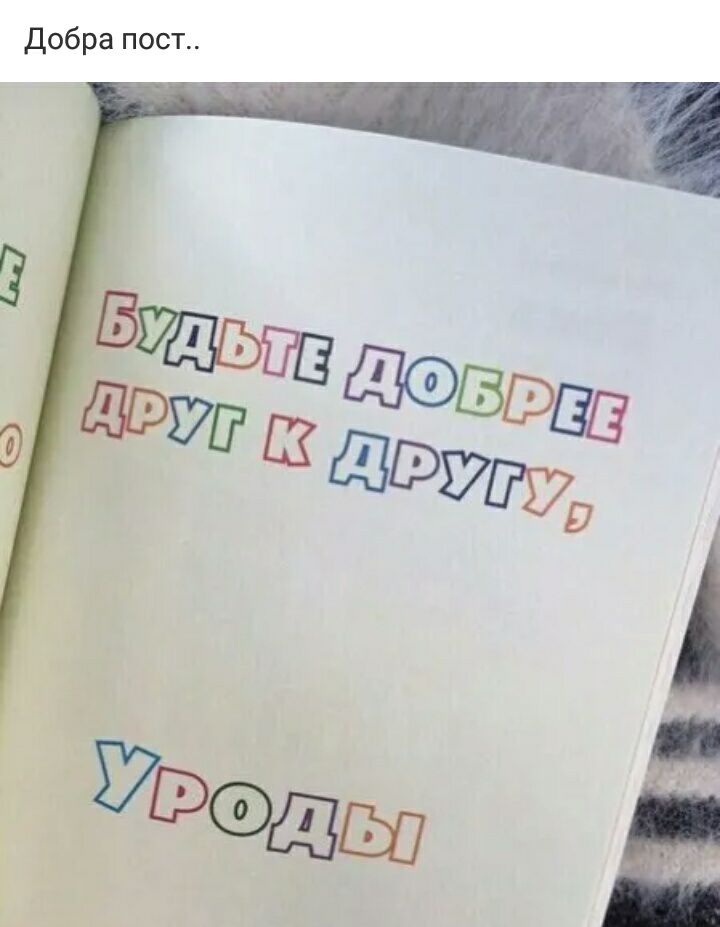 Добра пост..
Е
О
БУДЬТЕ ДОБРЕЕ
ДРУГ К ДРУГУ,
УРОДЫ